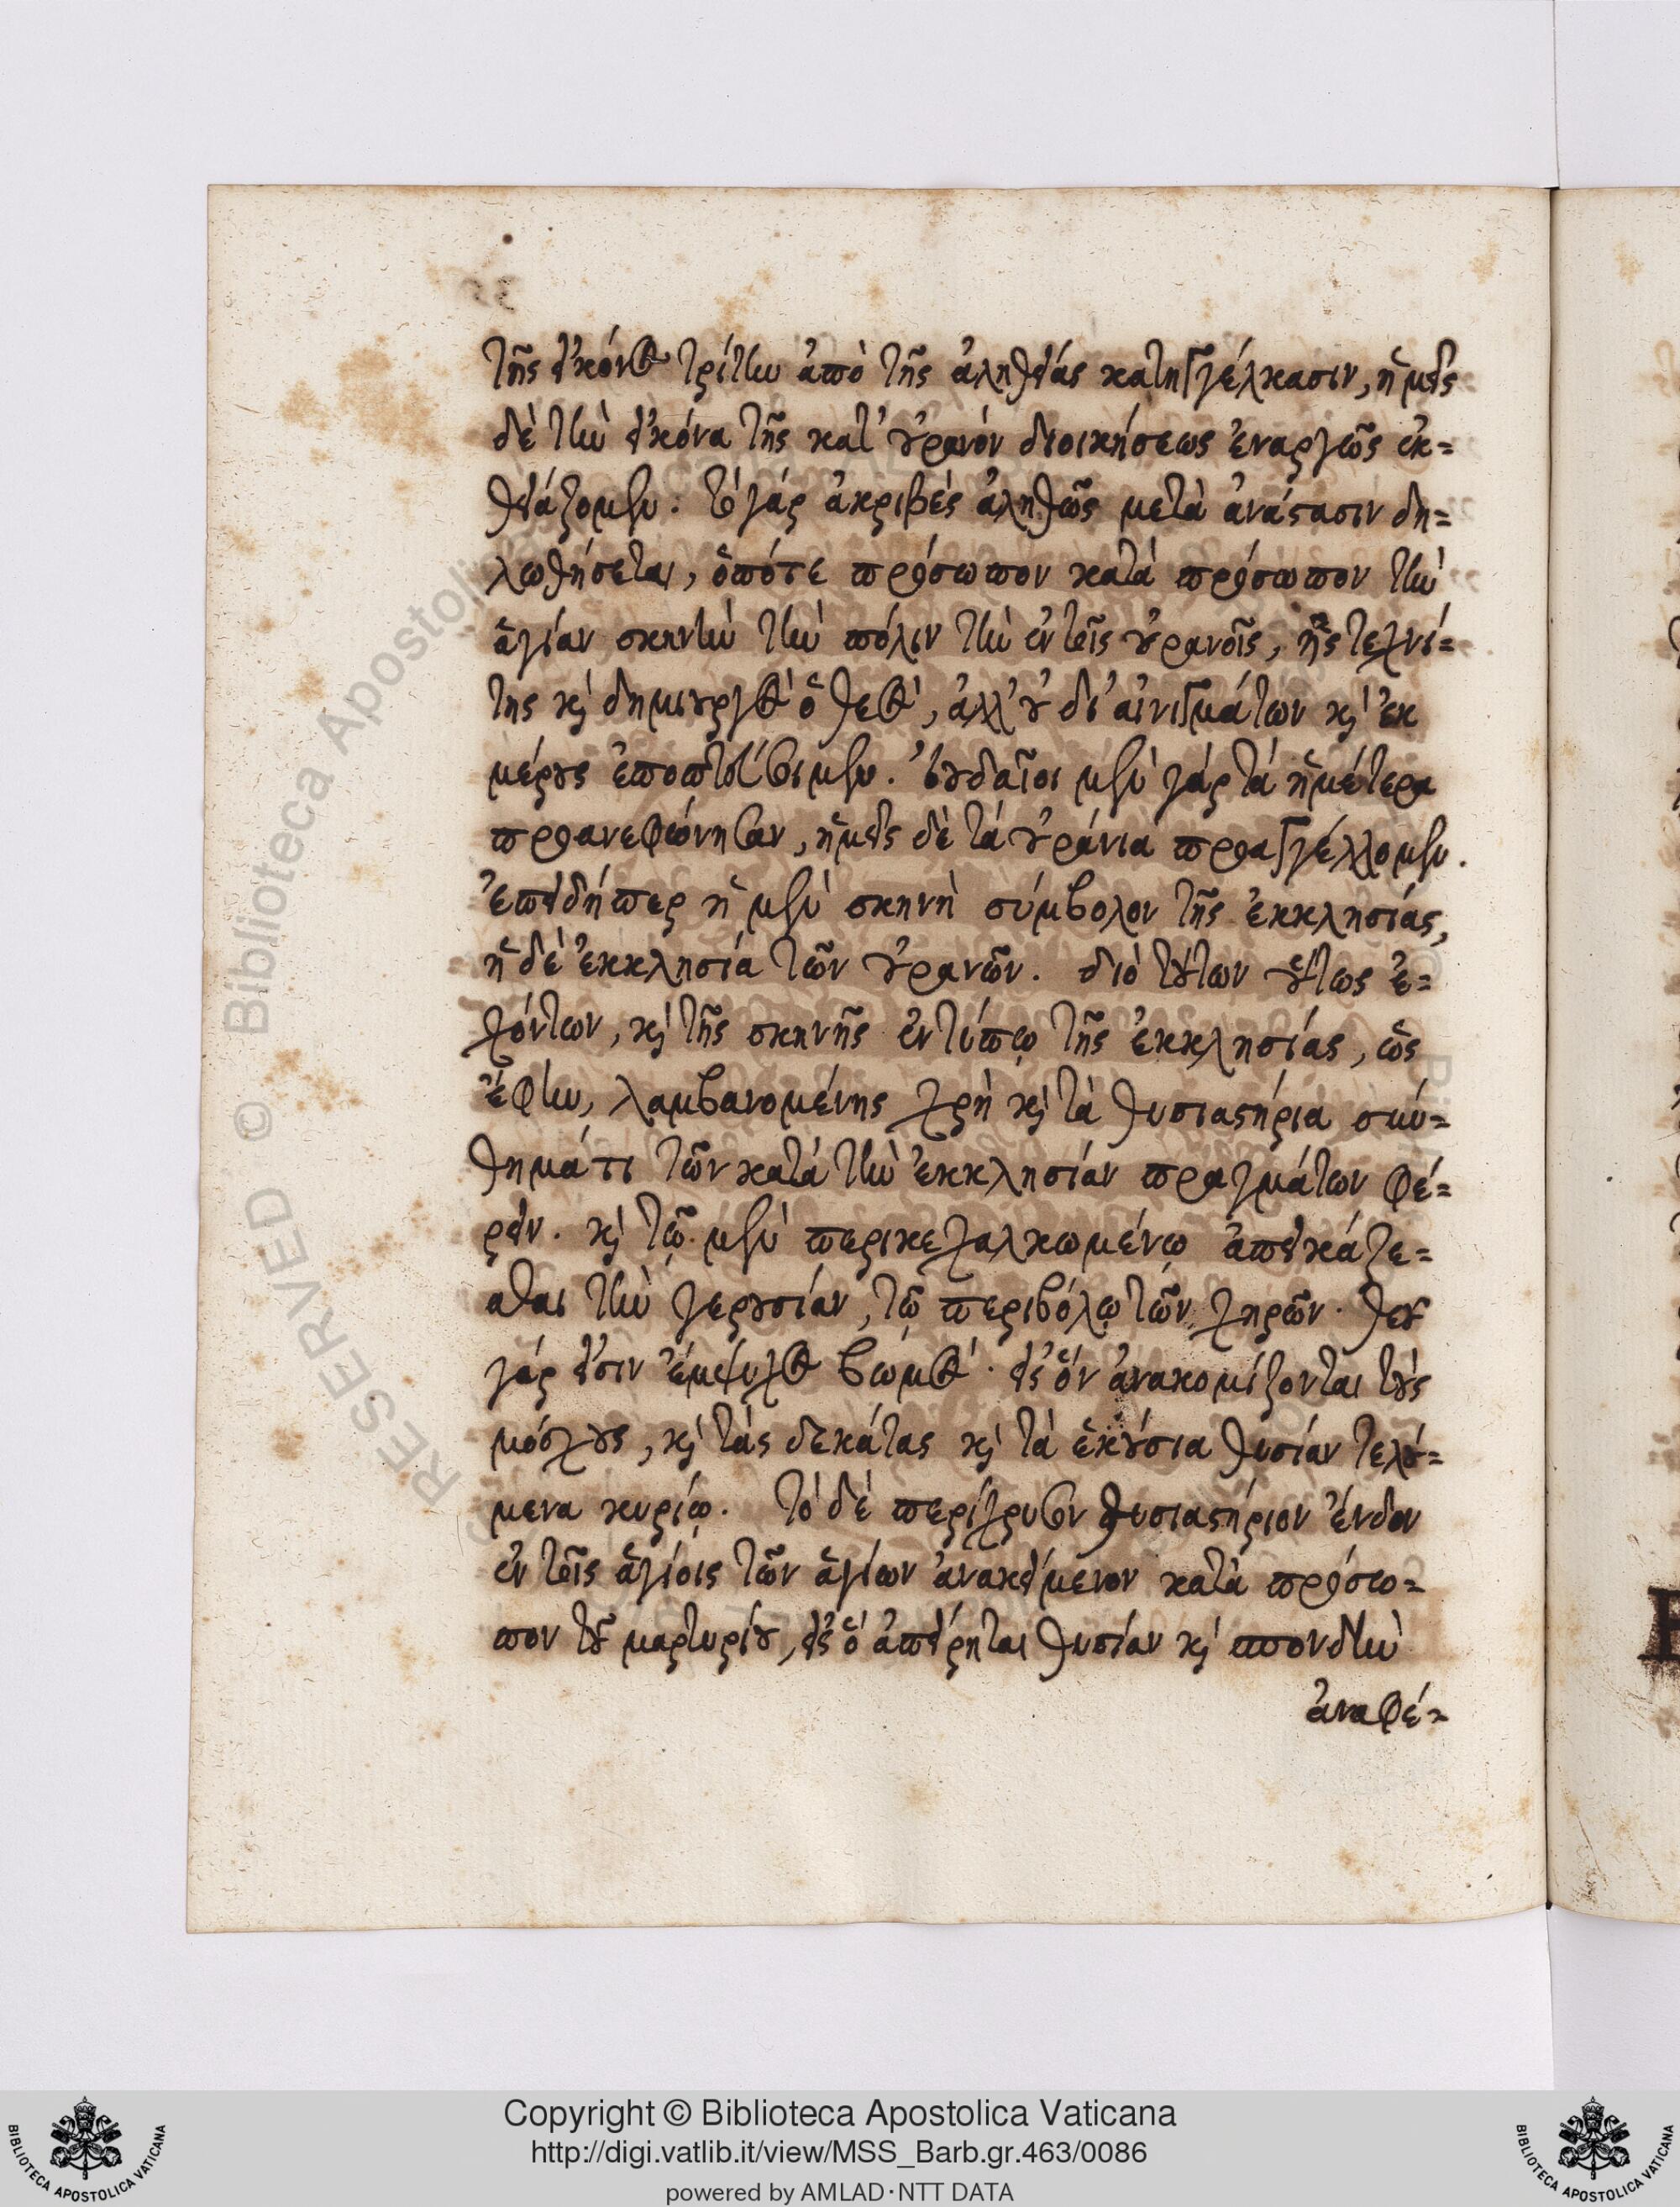 τῆς εἰκόνος τρίτην ἀπὸ τῆς ἀληθείας κατηγγέλκασιν, ἡμεῖς
δὲ τὴν εἰκόνα τῆς κατ' οὐρανόν διοικήσεως ἐναργῶς ἐκ=
θειάζομεν. τὸ γάρ ἀκριβές ἀληθῶς μετὰ ἀνάστασιν δη=
λωθήσεται, ὁπότε πρόσωπον κατά πρόσωπον τὴν
ἁγίαν σκηνὴν τὴν πόλιν τὴν ἐν τοῖς οὐρανοῖς, ἧς τεχνί=
της καὶ δημιουργὸς ὁ θεὸς, ἀλλ' οὐ δι' αἰνιγμάτων καὶ ἐκ
μέρους ἐποπτεύσιμεν. Ἰουδαῖοι μὲν γάρ τά ἡμέτερα
προανεφώνησαν, ἡμεῖς δὲ τά οὐράνια προαγγέλλομεν.
ἐπειδήπερ ἡ μὲν σκηνὴ σύμβολον τῆς ἐκκλησίας,
ἡ δὲ ἐκκλησία τῶν οὐρανῶν. διό τούτων οὕτως ἐ=
χόντων, καὶ τῆς σκηνῆς ἐν τύπῳ τῆς ἐκκλησίας, ὡς
ἔφην, λαμβανομένης χρὴ καὶ τὰ θυσιαστήρια συν=
θημάτι τῶν κατά τὴν ἐκκλησίαν πραγμάτων φέ=
ρειν. καὶ τῷ μὲν περικεχαλκωμένῳ ἀπεικάζε=
σθαι τὴν γερουσίαν, τῷ περιβόλῳ τῶν χηρῶν. θεοῦ
γάρ εἰσιν ἔμψυχος βωμὸς. εἰς ὅν ἀνακομίζονται τοὺς
μόσχους, καὶ τάς δεκάτας καὶ τὰ ἑκούσια θυσίαν τελού=
μενα κυρίῳ. τὸ δέ περίχρυσον θυσιαστήριον ἔνδον
ἐν τοῖς ἁγίοις τῶν ἁγίων ἀνακείμενον κατὰ πρόσω=
πον τοῦ μαρτυρίου, εἰς ὅ ἀπείρηται θυσίαν καὶ σπονδὴν
ἀναφέ=
Copyright © Biblioteca Apostolica Vaticana
http://digi.vatlib.it/view/MSS_Barb.gr.463/0086
powered by AMLAD·NTT DATA
RESERVED © Biblioteca Apostolica
BIBLIOTECA APOSTOLICA VATICANA
BIBLIOTECA APOSTOLICA VATICANA